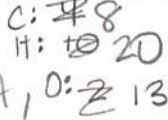 C: 8
H: 20
, O: 13